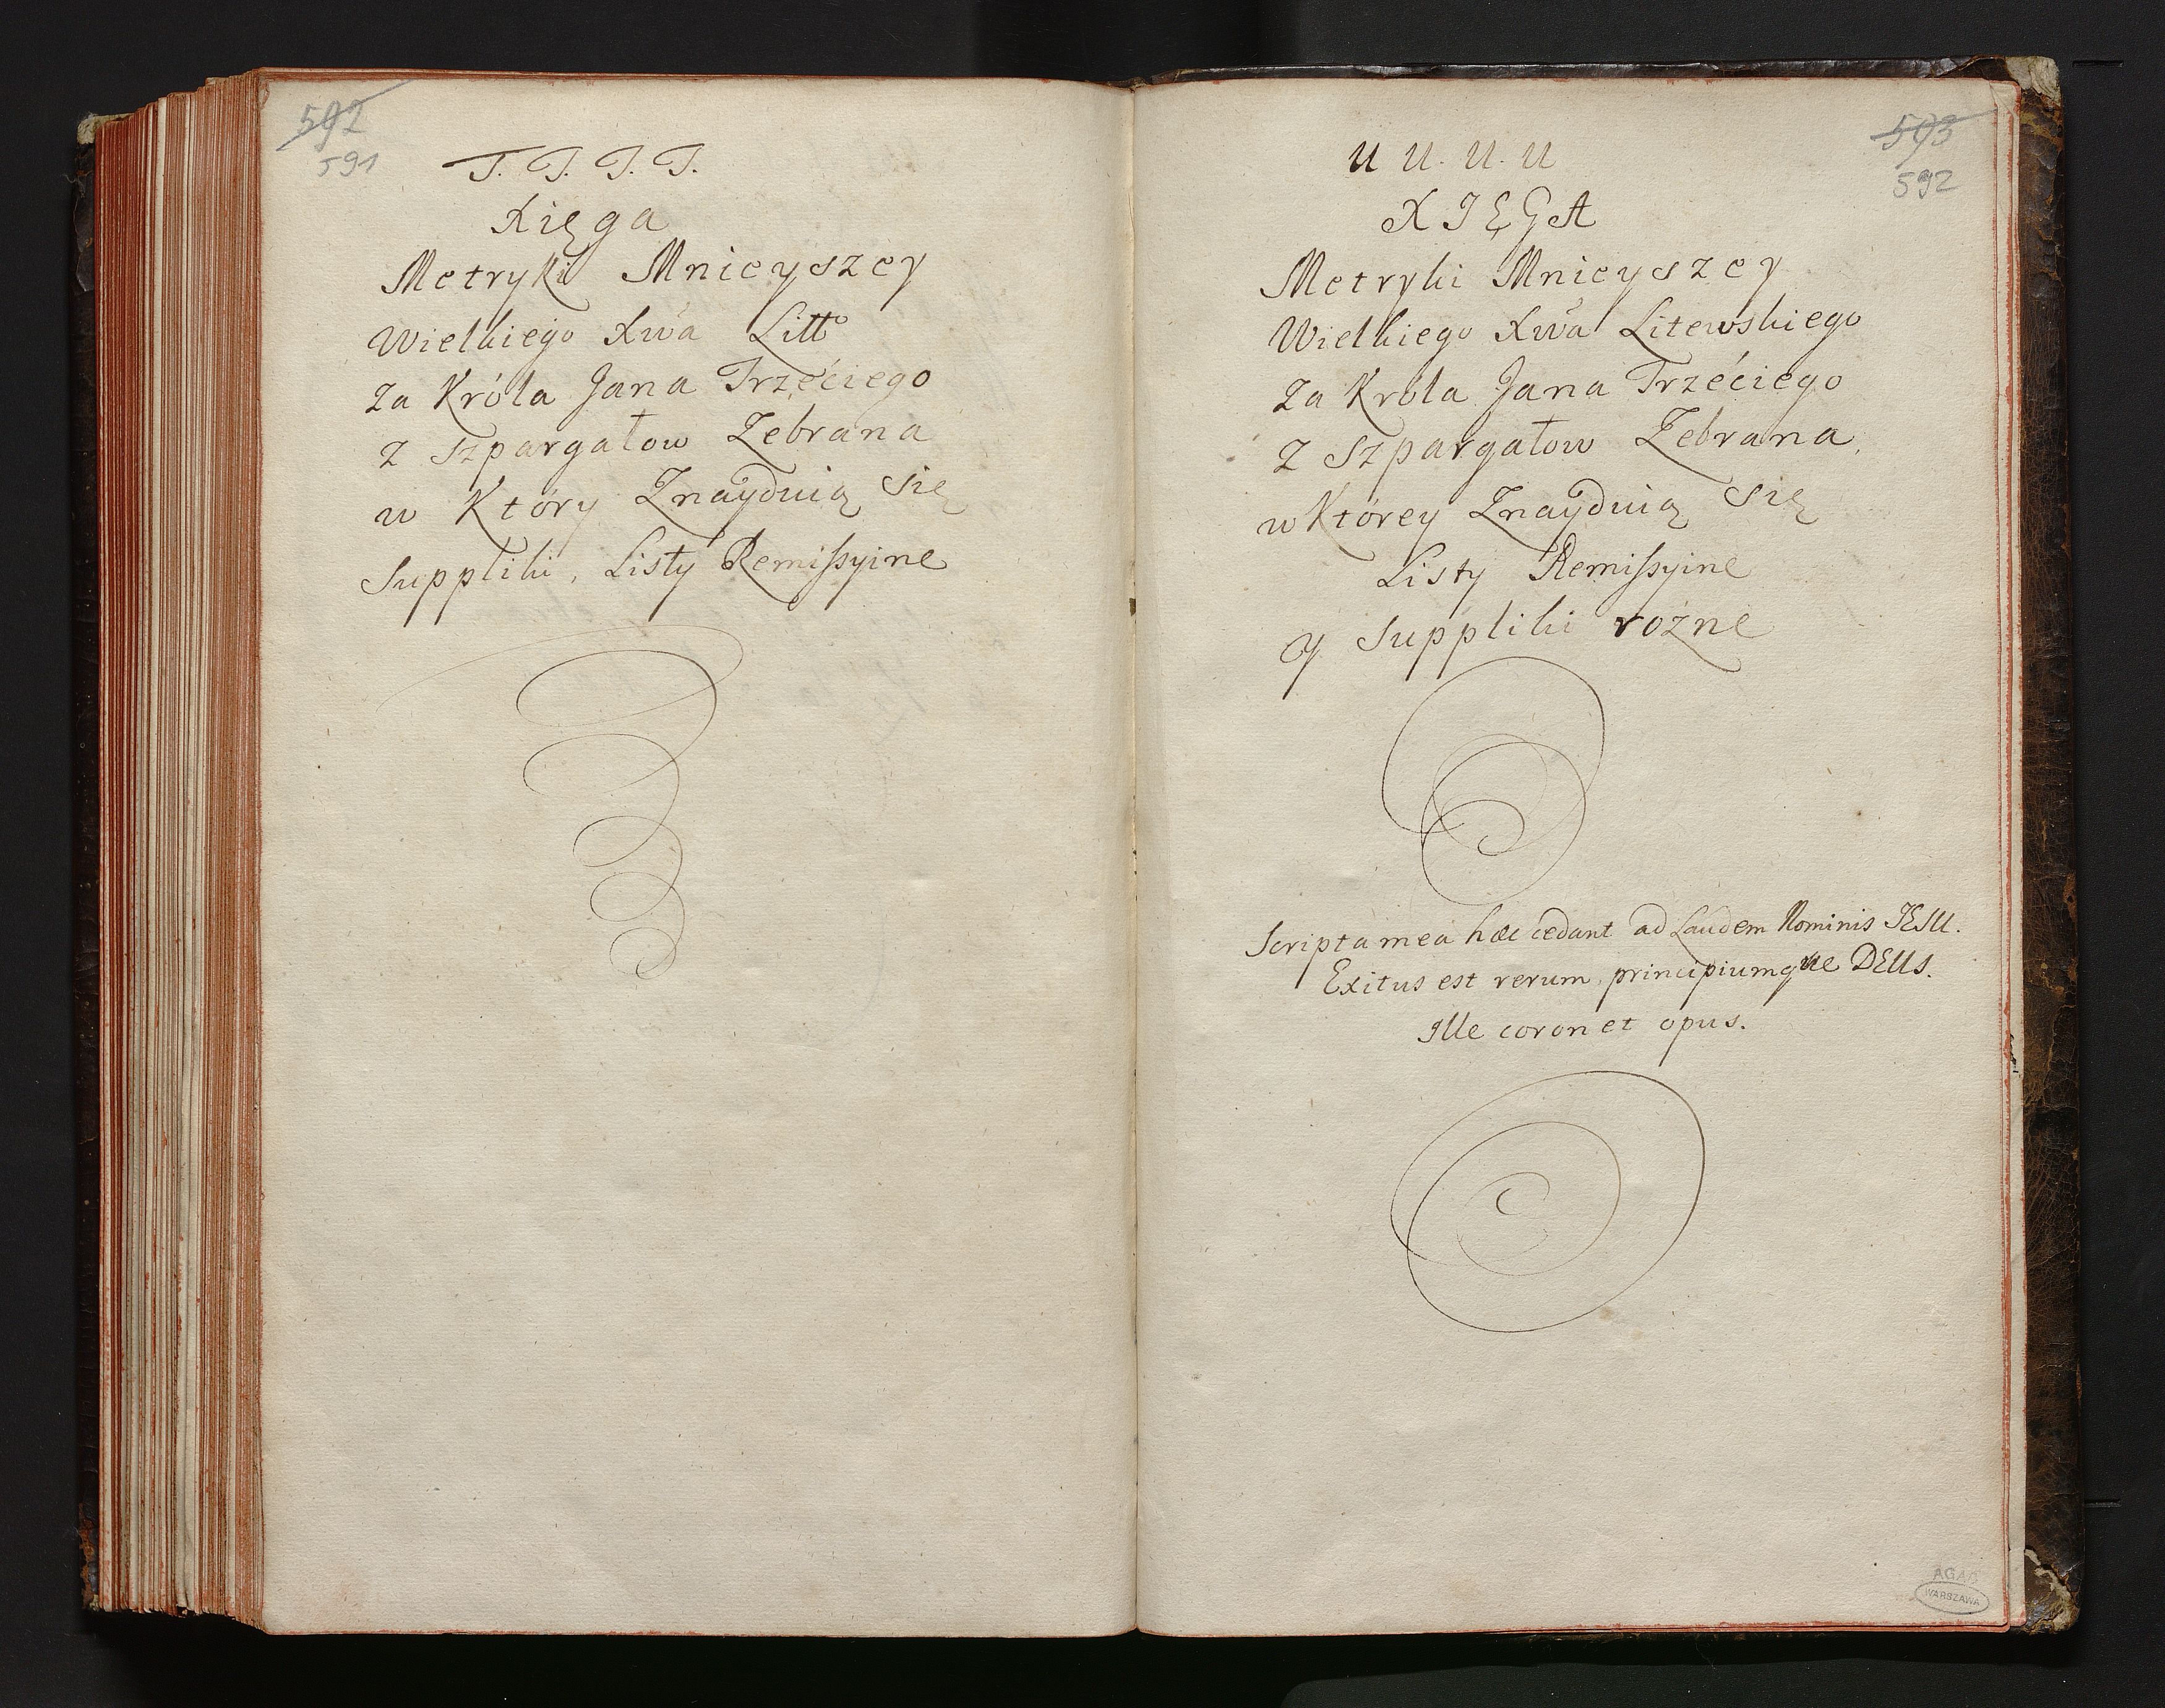 592
591
T. T. T. T.
Xięga
Metryki Mnieyszey
Wielkiego Xwa Littº
Za Króla Jana Trzećiego
z szpargałow Zebrana
w Który Znayduią się
Suppliki, Listy Remissyine
593
592
U U. U. U
XIĘGA
Metryki Mnieyszey
Wielkiego Xwa Litewskiego
Za Króla Jana Trzećiego
z szpargałow Zebrana
w Którey Znayduią się
Listy Remissyine
y Suppliki rożne
Scripta mea hæc cedant ad Laudem Nominis JESU.
Exitus est rerum, principiumque DEUs.
Ille coronet opus.
AGAD
WARSZAWA